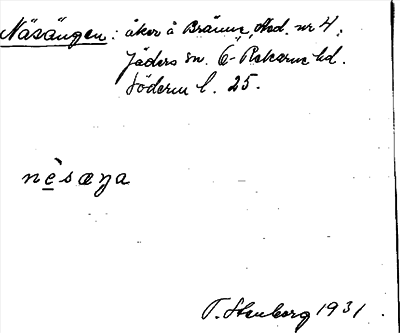 Näsängen: åker å Bränne, Med. nr 4,
Jäders sn. Ö-Rekarne hd.
Söderm l. 25.
nèsæŋa
T. Stenborg 1931.